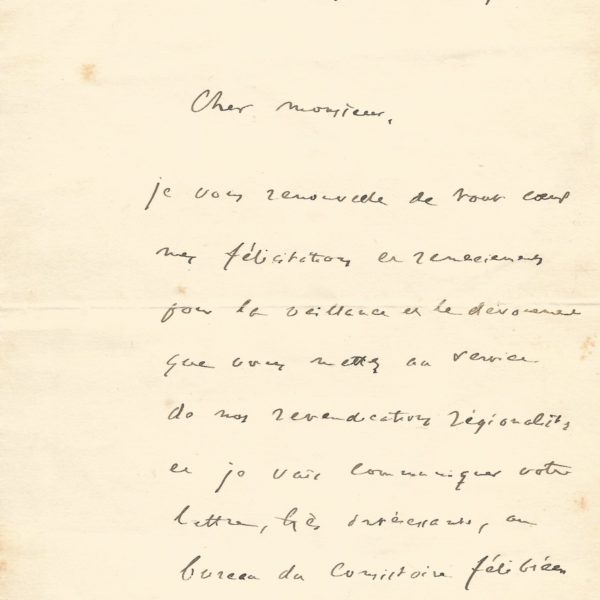 Cher monsieur,
je vous renouvelle de tout cœur
mes félicitations et remerciements
pour la vaillance et le dévouement
que vous mettez au service
de nos revendications régionalistes
et je vais communiquer votre
lettre, très intéressante, au
bureau du Consistoire félibréen